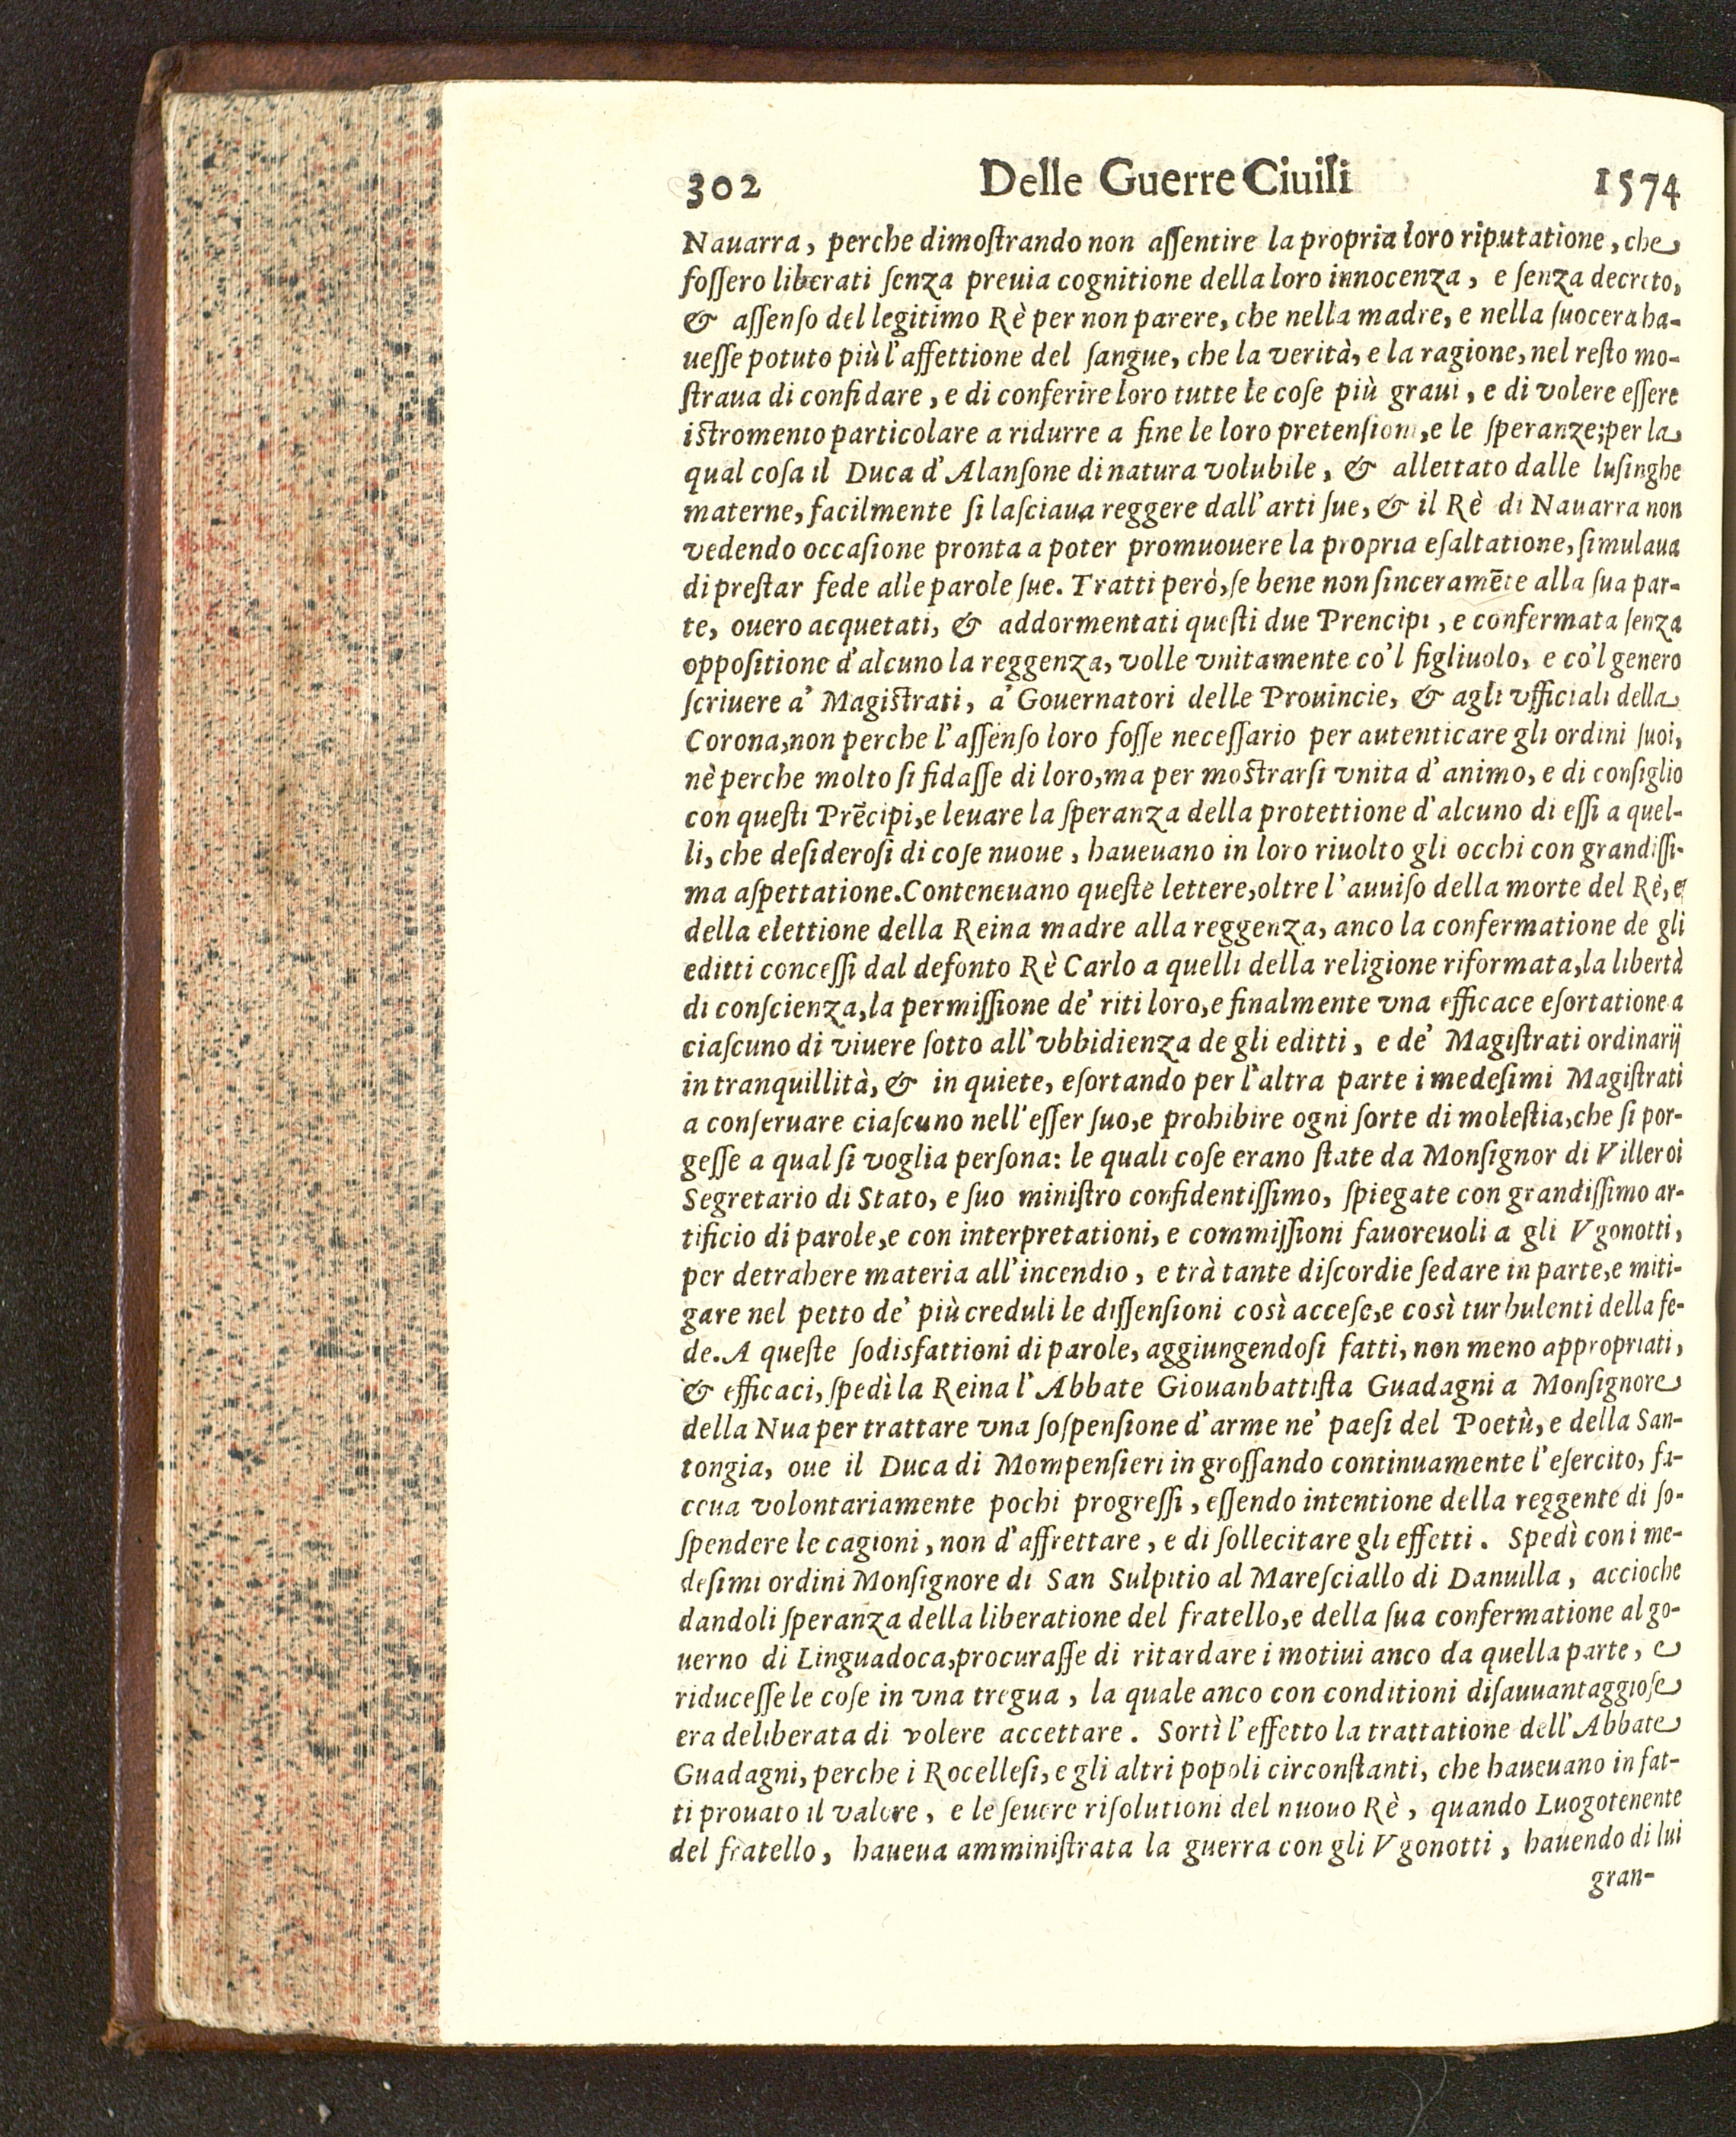 302 Delle Guerre Ciuili 1574
Nauarra, perche dimoſtrando non aſſentire la propria loro riputatione, che
foſſero liberati ſenza preuia cognitione della loro innocenza, e ſenza decreto,
& aſſenſo del legitimo Rè per non parere, che nella madre, e nella ſuocera ha-
ueſſe potuto più l'affettione del ſangue, che la verità, e la ragione, nel reſto mo-
ſtraua di confidare, e di conferire loro tutte le coſe più graui, e di volere eſſere
iſtromento particolare a ridurre a fine le loro pretenſioni, e le ſperanze; per la
qual coſa il Duca d'Alanſone di natura volubile, & allettato dalle luſinghe
materne, facilmente ſi laſciaua reggere dall'arti ſue, & il Rè di Nauarra non
vedendo occaſione pronta a poter promuouere la propria eſaltatione, ſimulaua
di preſtar fede alle parole ſue. Tratti però, ſe bene non ſinceramēte alla ſua par-
te, ouero acquetati, & addormentati queſti due Prencipi, e confermata ſenza
oppoſitione d'alcuno la reggenza, volle vnitamente co'l figliuolo, e co'l genero
ſcriuere a' Magiſtrati, a' Gouernatori delle Prouincie, & agli vfficiali della
Corona, non perche l'aſſenſo loro foſſe neceſſario per autenticare gli ordini ſuoi,
nè perche molto ſi fidaſſe di loro, ma per moſtrarſi vnita d'animo, e di conſiglio
con queſti Prēcipi, e leuare la ſperanza della protettione d'alcuno di eſſi a quel-
li, che deſideroſi di coſe nuoue, haueuano in loro riuolto gli occhi con grandiſſi-
ma aſpettatione. Conteneuano queſte lettere, oltre l'auuiſo della morte del Rè, e
della elettione della Reina madre alla reggenza, anco la confermatione de gli
editti conceſſi dal defonto Rè Carlo a quelli della religione riformata, la libertà
di conſcienza, la permiſſione de' riti loro, e finalmente vna efficace eſortatione a
ciaſcuno di viuere ſotto all'vbbidienza de gli editti, e de' Magiſtrati ordinarij
in tranquillità, & in quiete, eſortando per l'altra parte i medeſimi Magiſtrati
a conſeruare ciaſcuno nell'eſſer ſuo, e prohibire ogni ſorte di moleſtia, che ſi por-
geſſe a qual ſi voglia perſona: le quali coſe erano ſtate da Monſignor di Villeroi
Segretario di Stato, e ſuo miniſtro confidentiſſimo, ſpiegate con grandiſſimo ar-
tificio di parole, e con interpretationi, e commiſſioni fauoreuoli a gli Vgonotti,
per detrahere materia all'incendio, e trà tante diſcordie ſedare in parte, e miti-
gare nel petto de' più creduli le diſſenſioni così acceſe, e così turbulenti della fe-
de. A queſte ſodisfattioni di parole, aggiungendoſi fatti, non meno appropriati,
& efficaci, ſpedì la Reina l'Abbate Giouanbattiſta Guadagni a Monſignore
della Nua per trattare vna ſoſpenſione d'arme ne' paeſi del Poetù, e della San-
tongia, oue il Duca di Mompenſieri ingroſſando continuamente l'eſercito, fa-
ceua volontariamente pochi progreſſi, eſſendo intentione della reggente di ſo-
ſpendere le cagioni, non d'affrettare, e di ſollecitare gli effetti. Spedì con i me-
deſimi ordini Monſignore di San Sulpitio al Mareſciallo di Danuilla, accioche
dandoli ſperanza della liberatione del fratello, e della ſua confermatione al go-
uerno di Linguadoca, procuraſſe di ritardare i motiui anco da quella parte, e
riduceſſe le coſe in vna tregua, la quale anco con conditioni diſauuantaggioſe
era deliberata di volere accettare. Sortì l'effetto la trattatione dell'Abbate
Guadagni, perche i Rocelleſi, e gli altri popoli circonſtanti, che haueuano in fat-
ti prouato il valore, e le ſeuere riſolutioni del nuouo Rè, quando Luogotenente
del fratello, haueua amminiſtrata la guerra con gli Vgonotti, hauendo di lui
gran-